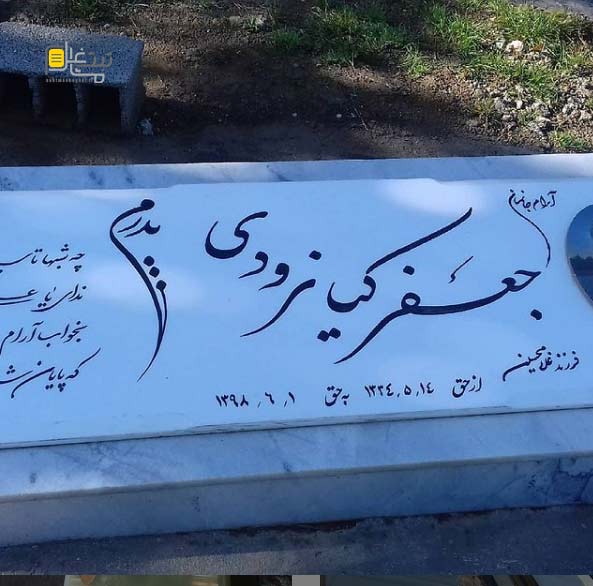 آرام جانمان
جعفر کیانرودی
فرزند غلامحسین
از حق ۱۳۲۴٫۵٫۱۴ به حق ۱۳۹۸٫۶٫۱
پدرم
چه شبها تا سـ
ندای یا عـ
بخواب آرام
که پایان شـ